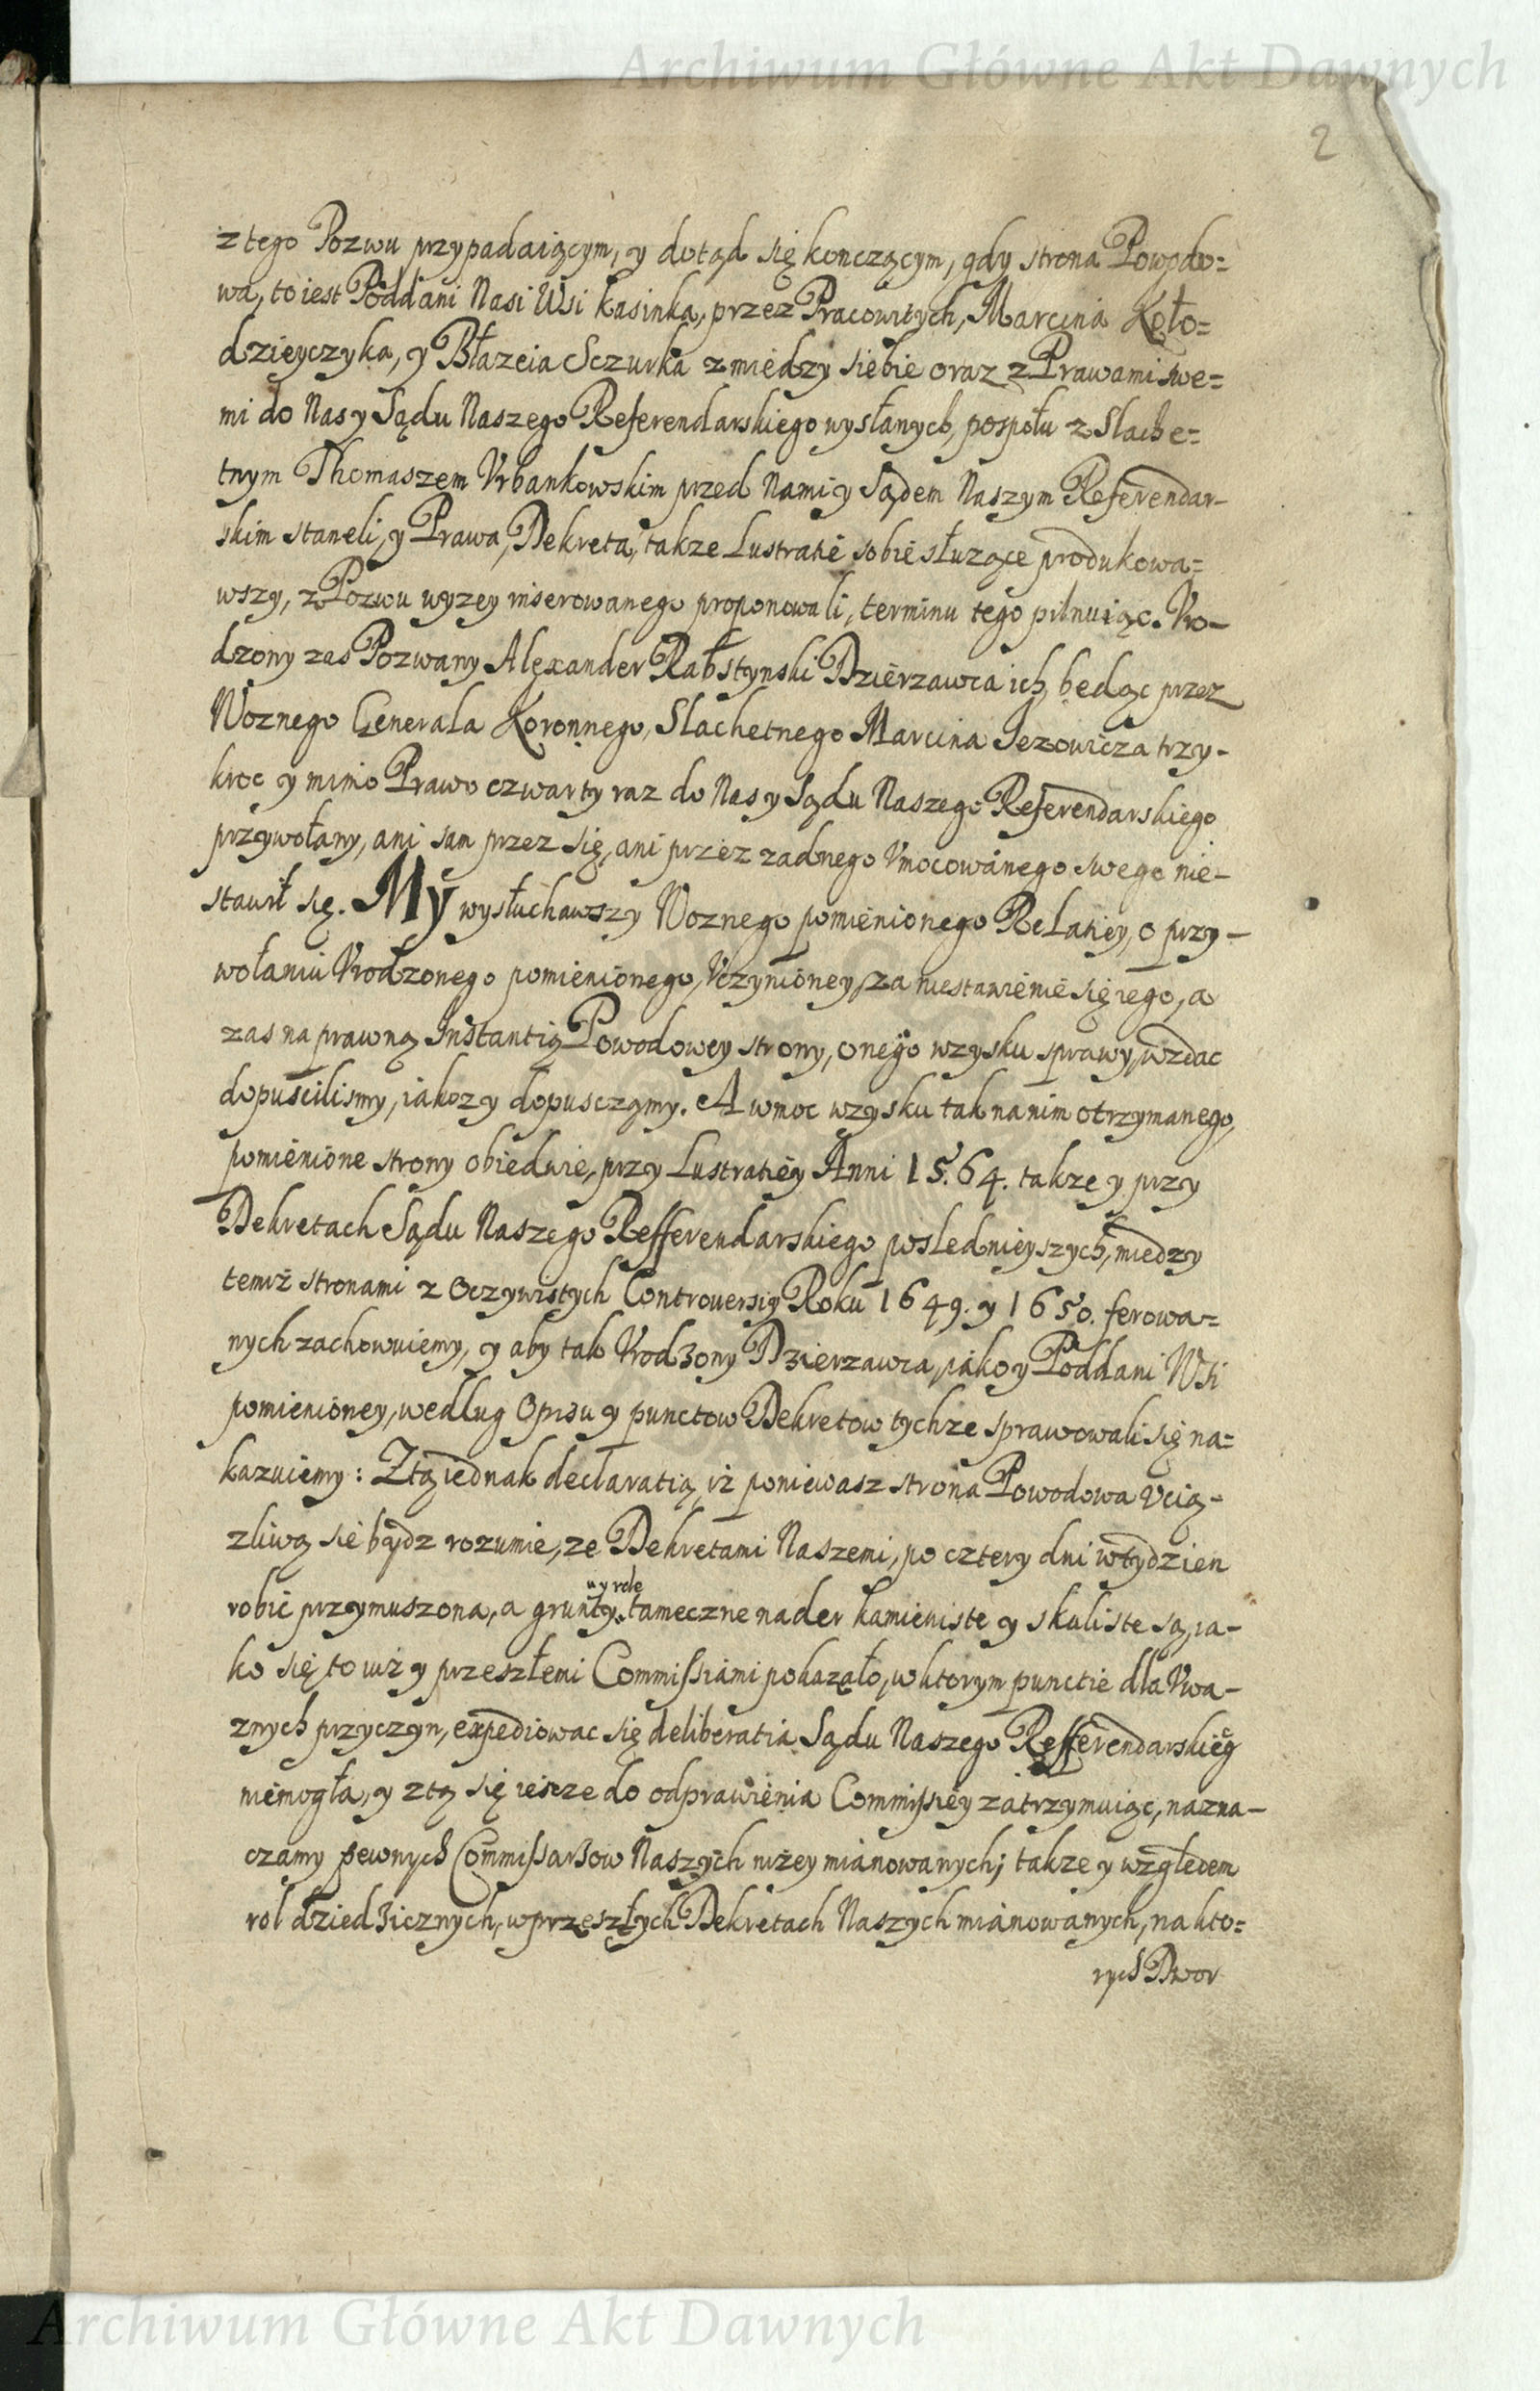 Archiwum Główne Akt Dawnych
2
z tego Pozwu przypadaiącym, y dotąd się konczącym, gdy strona Powodo=
wa, to iest Poddani Nasi Wsi Kasinka, przez Pracowitych, Marcina Koło=
dzieyczyka, y Błazeia Sczurka z miedzy siebie oraz z Prawami swe=
mi do Nas y Sądu Naszego Referendarskiego wysłanych, pospołu z Slache=
tnym Thomaszem Vrbankowskim przed Nami y Sądem Naszym Referendar-
skim staneli, y Prawa, Dekreta, takze Lustratie sobie słuzące produkowa=
wszy, z Pozwu wyzey inserowanego proponowali, terminu tego pilnuiąc. Vro-
dzony zas Pozwany Alexander Rabstynski Dzierzawca ich, będąc przez
Woznego Generala Koronnego, Slachetnego Marcina Jezowicza trzy-
kroc y mimo Prawo czwarty raz do Nas y Sądu Naszego Referendarskiego
przywołany, ani sam przez się, ani przez zadnego Vmocowanego swego nie-
stawił się. My wysłuchawszy Woznego pomienionego Relatiey, o przy-
wołaniu Vrodzonego pomienionego, Vczynioney, za niestawienie się iego, a
zas na prawną Instantią Powodowey strony, onego wzysku sprawy, wzdac
dopuscilismy, iakoz y dopusczamy. A w moc wzysku tak na nim otrzymanego,
pomienione strony obiedwie, przy Lustratiey Anni 1564. takze y przy
Dekretach Sądu Naszego Refferendarskiego poslednieyszych, miedzy
temiż stronami z Oczywistych Controuersiy Roku 1649. y 1650. ferowa=
nych zachowuiemy, y aby tak Vrodzony Dzierzawca, iako y Poddani Wsi
pomienioney, według Opisu y punctow Dekretow tychze sprawowali się na=
kazuiemy: Z tą iednak declaratią, iż poniewasz strona Powodowa Vcią-
zliwą sie bydz rozumie, ze Dekretami Naszemi, po cztery dni w tydzien
robić przymuszona, a grunty tameczne nader kamieniste y skaliste są, ia-
ko się to iuż y przeszłemi Commissiami pokazało, w ktorym punctie dla Vwa-
znych przyczyn, expediowac się deliberatia Sądu Naszego Refferendarskieg
niemogła, y z tą się iescze do odprawienia Commissiey zatrzymuiąc, nazna-
czamy pewnych Commissarzow Naszych niżey mianowanych; takze y względem
rol dziedzicznych, w przeszłych Dekretach Naszych mianowanych, na kto=
rych Dwor
Archiwum Główne Akt Dawnych